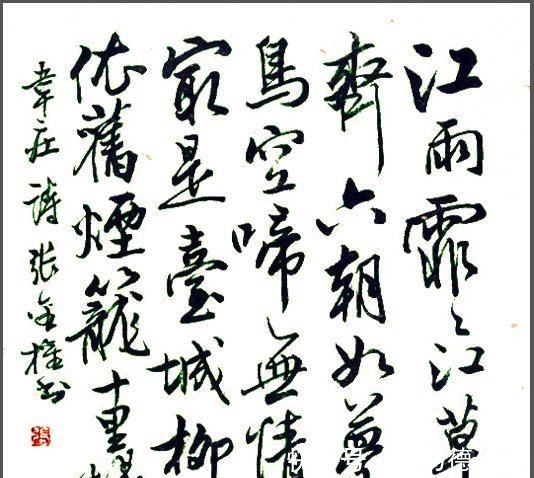 江雨霏〻江草
齊六朝如夢
鳥空啼無情
最是臺城柳
依舊煙籠十里堤
韋莊詩 張金